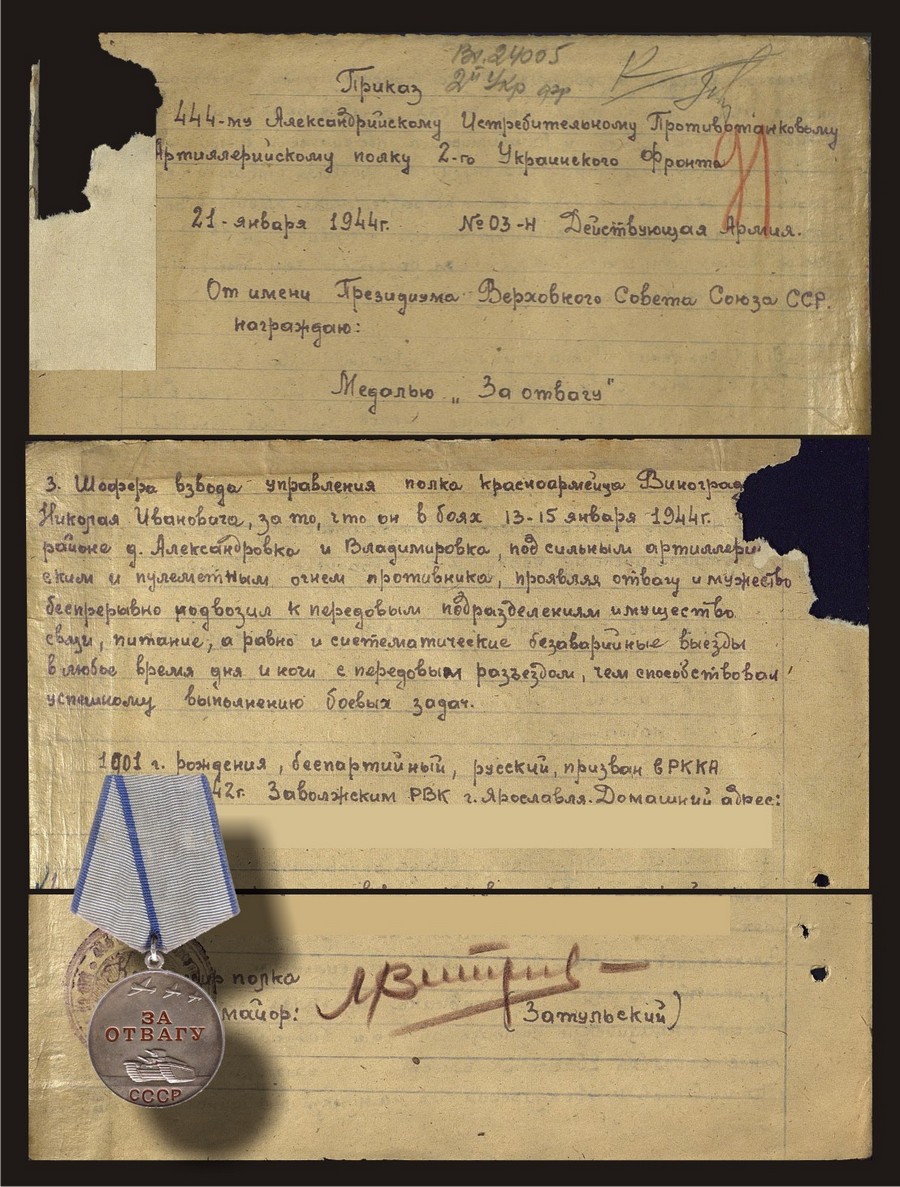 Вх. 24005
2й Укр фр
Приказ
444-му Александрийскому Истребительному Противотанковому
Артиллерийскому полку 2-го Украинского Фронта
21-января 1944г. №03-н Действующая Армия.
От имени Президиума Верховного Совета Союза ССР.
награждаю:
Медалью „За отвагу"
3. Шофера взвода управления полка красноармейца Виноград
Николая Ивановича, за то, что он в боях 13-15 января 1944г.
районе д. Александровка и Владимировка, под сильным артиллери
ским и пулеметным огнем противника, проявляя отвагу и мужество
беспрерывно подвозил к передовым подразделениям имущество
связи, питание, а равно и систематические безаварийные выезды
в любое время дня и ночи с передовым разъездом, чем способствовал
успешному выполнению боевых задач.
1901 г. рождения, беспартийный, русский, призван в РККА
42г. Заволжским РВК г. Ярославля. Домашний адрес:
ир полка
майор: (Затульский)
ЗА
ОТВАГУ
СССР